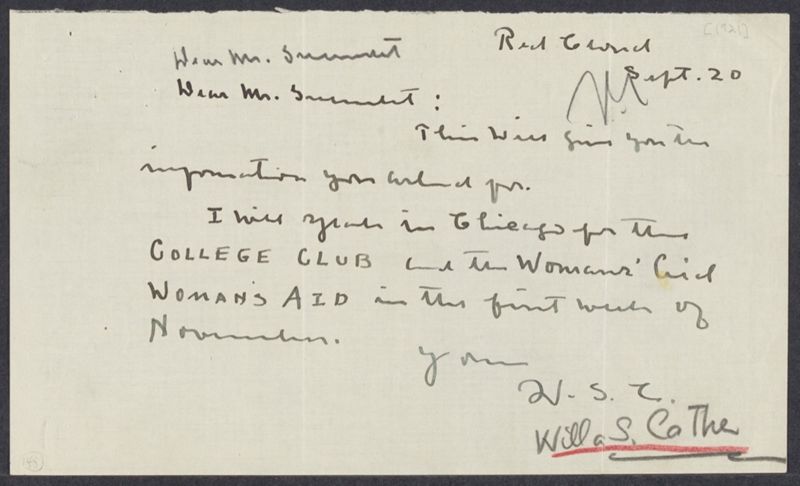 [1921]
Red Cloud
Sept. 20
Dear Mr.
Dear Mr.
This will give you the
information you asked for.
I will speak in Chicago for the
COLLEGE CLUB and the Womans' Aid
WOMAN'S AID in the first week of
November.
Yours
W. S. C.
Willa S. Cather
45